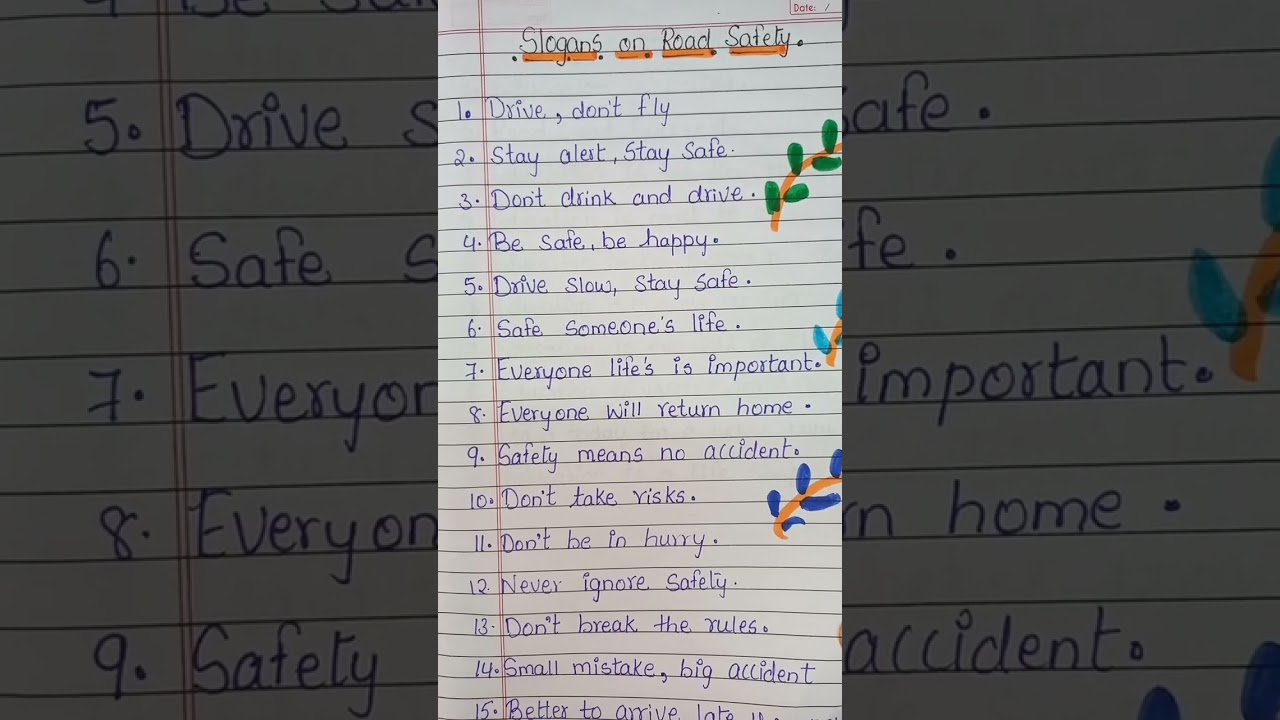 Date: /
Slogans on Road Safety.
1. Drive, don't fly
2. Stay alert, Stay Safe.
3. Don't drink and drive.
4. Be Safe, be happy.
5. Drive Slow, Stay Safe.
6. Safe Someone's life.
7. Everyone life's is important.
8. Everyone will return home.
9. Safety means no accident.
10. Don't take risks.
11. Don't be in hurry.
12. Never ignore Safety.
13. Don't break the rules.
14. Small mistake, big accident
15. Better to arrive late